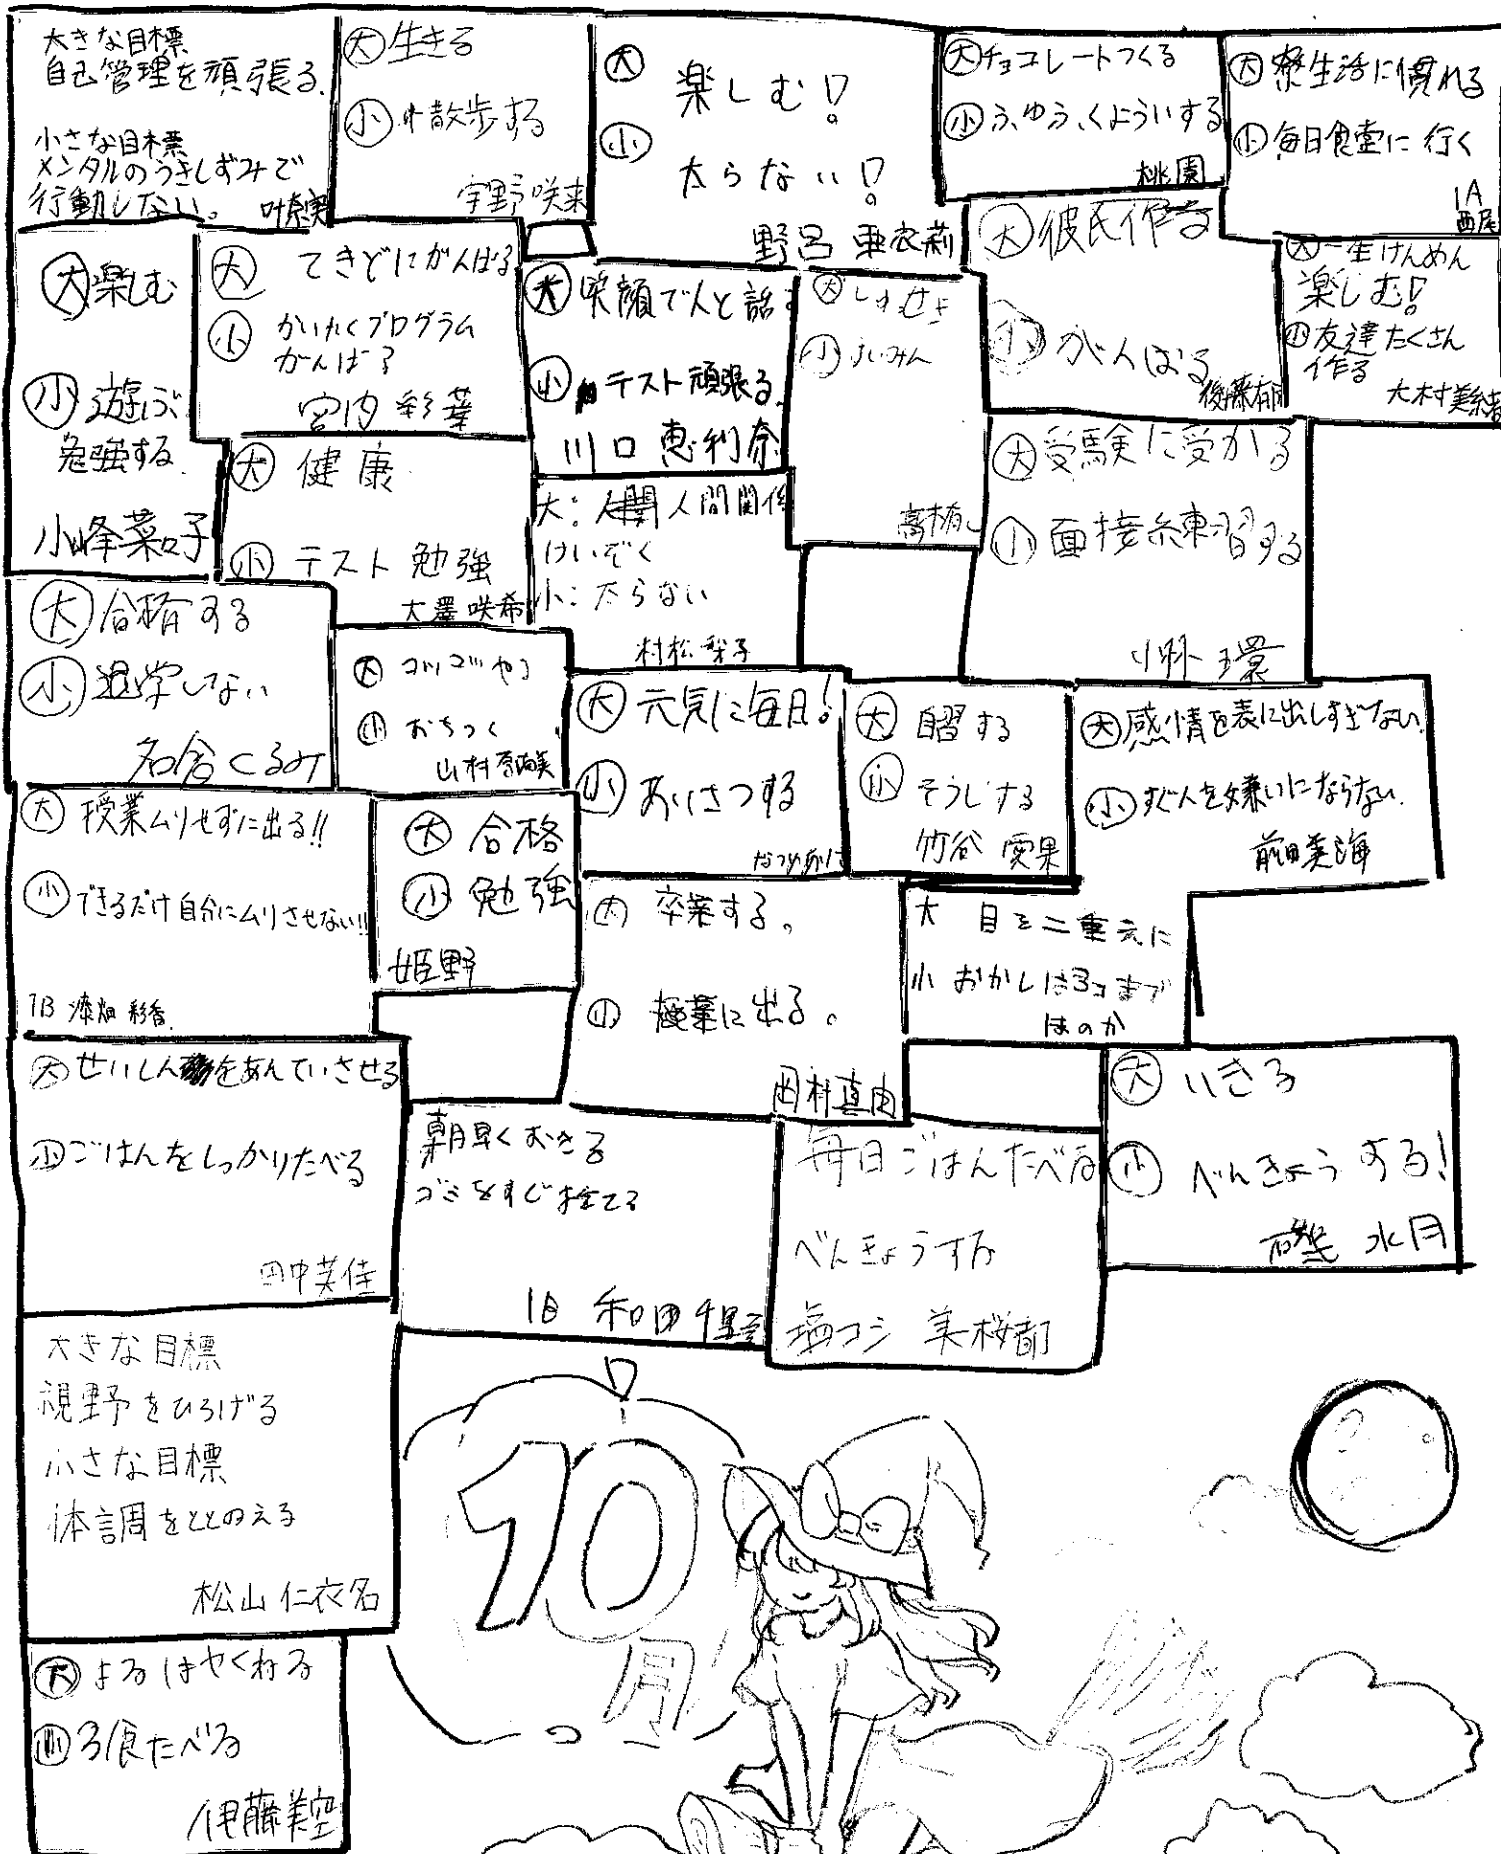 大きな目標
自己管理を頑張る.
小さな目標
メンタルのうきしずみで
行動しない。 叶奈実
大 生きる
小 散歩する
宇野 咲来
大 楽しむ!
小 太らない!
野呂 亜衣莉
大 チョコレートつくる
小 ふゆふくよういする
桃園
大 寮生活に慣れる
小 毎日食堂に行く
1A
西尾
大 楽しむ
小 遊ぶ
勉強する.
小峰菜々子
大 てきどにがんばる
小 かいたくプログラム
がんばる
宮内 彩華
大 笑顔で人と話す
小 テスト頑張る.
川口 恵利奈
大 しゅせき
小 すいみん
大 彼氏作る
小 がんばる
後藤有
大 一生けんめん
楽しむ!
小 友達たくさん
作る
大村美結
大 健康
小 テスト 勉強
大澤 咲希
大: 人間関係
けいぞく
小: 太らない
村松 梨子
大 受験に受かる
小 面接練習する
小林 環
大 合格する
小 退学しない
名倉くるみ
大 コツコツやる
小 おちつく
山村
大 元気に毎日!
小 あいさつする
大 自習する
小 そうじする
竹谷 愛果
大 感情を表に出しすぎない.
小 すぐ人を嫌いにならない.
前田美海
大 授業ムリせずに出る!!
小 できるだけ自分にムリさせない!!
1B 漆畑 彩香
大 合格
小 勉強
姫野
大 卒業する。
小 授業に出る。
岡村真由
大 目を二重元に
小 おかしは3コまで
ほのか
大 せいしんをあんていさせる
小 ごはんをしっかりたべる
田中英佳
朝早くおきる
ゴミをすぐ捨てる
1B 和田千聖
毎日ごはんたべる
べんきょうする
塩コシ 美桜都
大 いきる
小 べんきょうする!
磯 水月
大きな目標
視野をひろげる
小さな目標
体調をととのえる
松山 仁衣名
大 よるはやくねる
小 3食たべる
伊藤美空
10
月